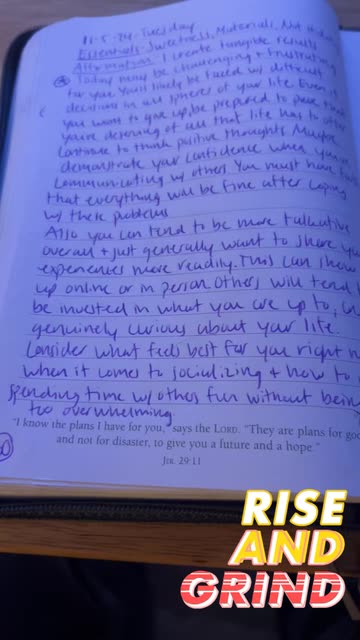 11-5-24-Tuesday
Essentials-Sweetness, Materials, Not
Affirmation-I create tangible results
Today may be challenging + frustrating
for you. You'll likely be faced w/ difficult
decisions in all spheres of your life. Even if
you want to give up, be prepared to prove that
you're deserving of all that life has to offer
Continue to think positive thoughts. Maybe
demonstrate your confidence when you're
communicating w/ others. You must have
that everything will be fine after coping
w/ these problems
Also you can tend to be more talkative
overall + just generally want to share your
experiences more readily. This can show
up online or in person. Others will tend
be invested in what you are up to,
genuinely curious about your life.
Consider what feels best for you right
when it comes to socializing + how to
spending time w/ others fun without being
too overwhelming.
"I know the plans I have for you," says the LORD. "They are plans for
and not for disaster, to give you a future and a hope."
JER. 29:11
RISE
AND
GRIND